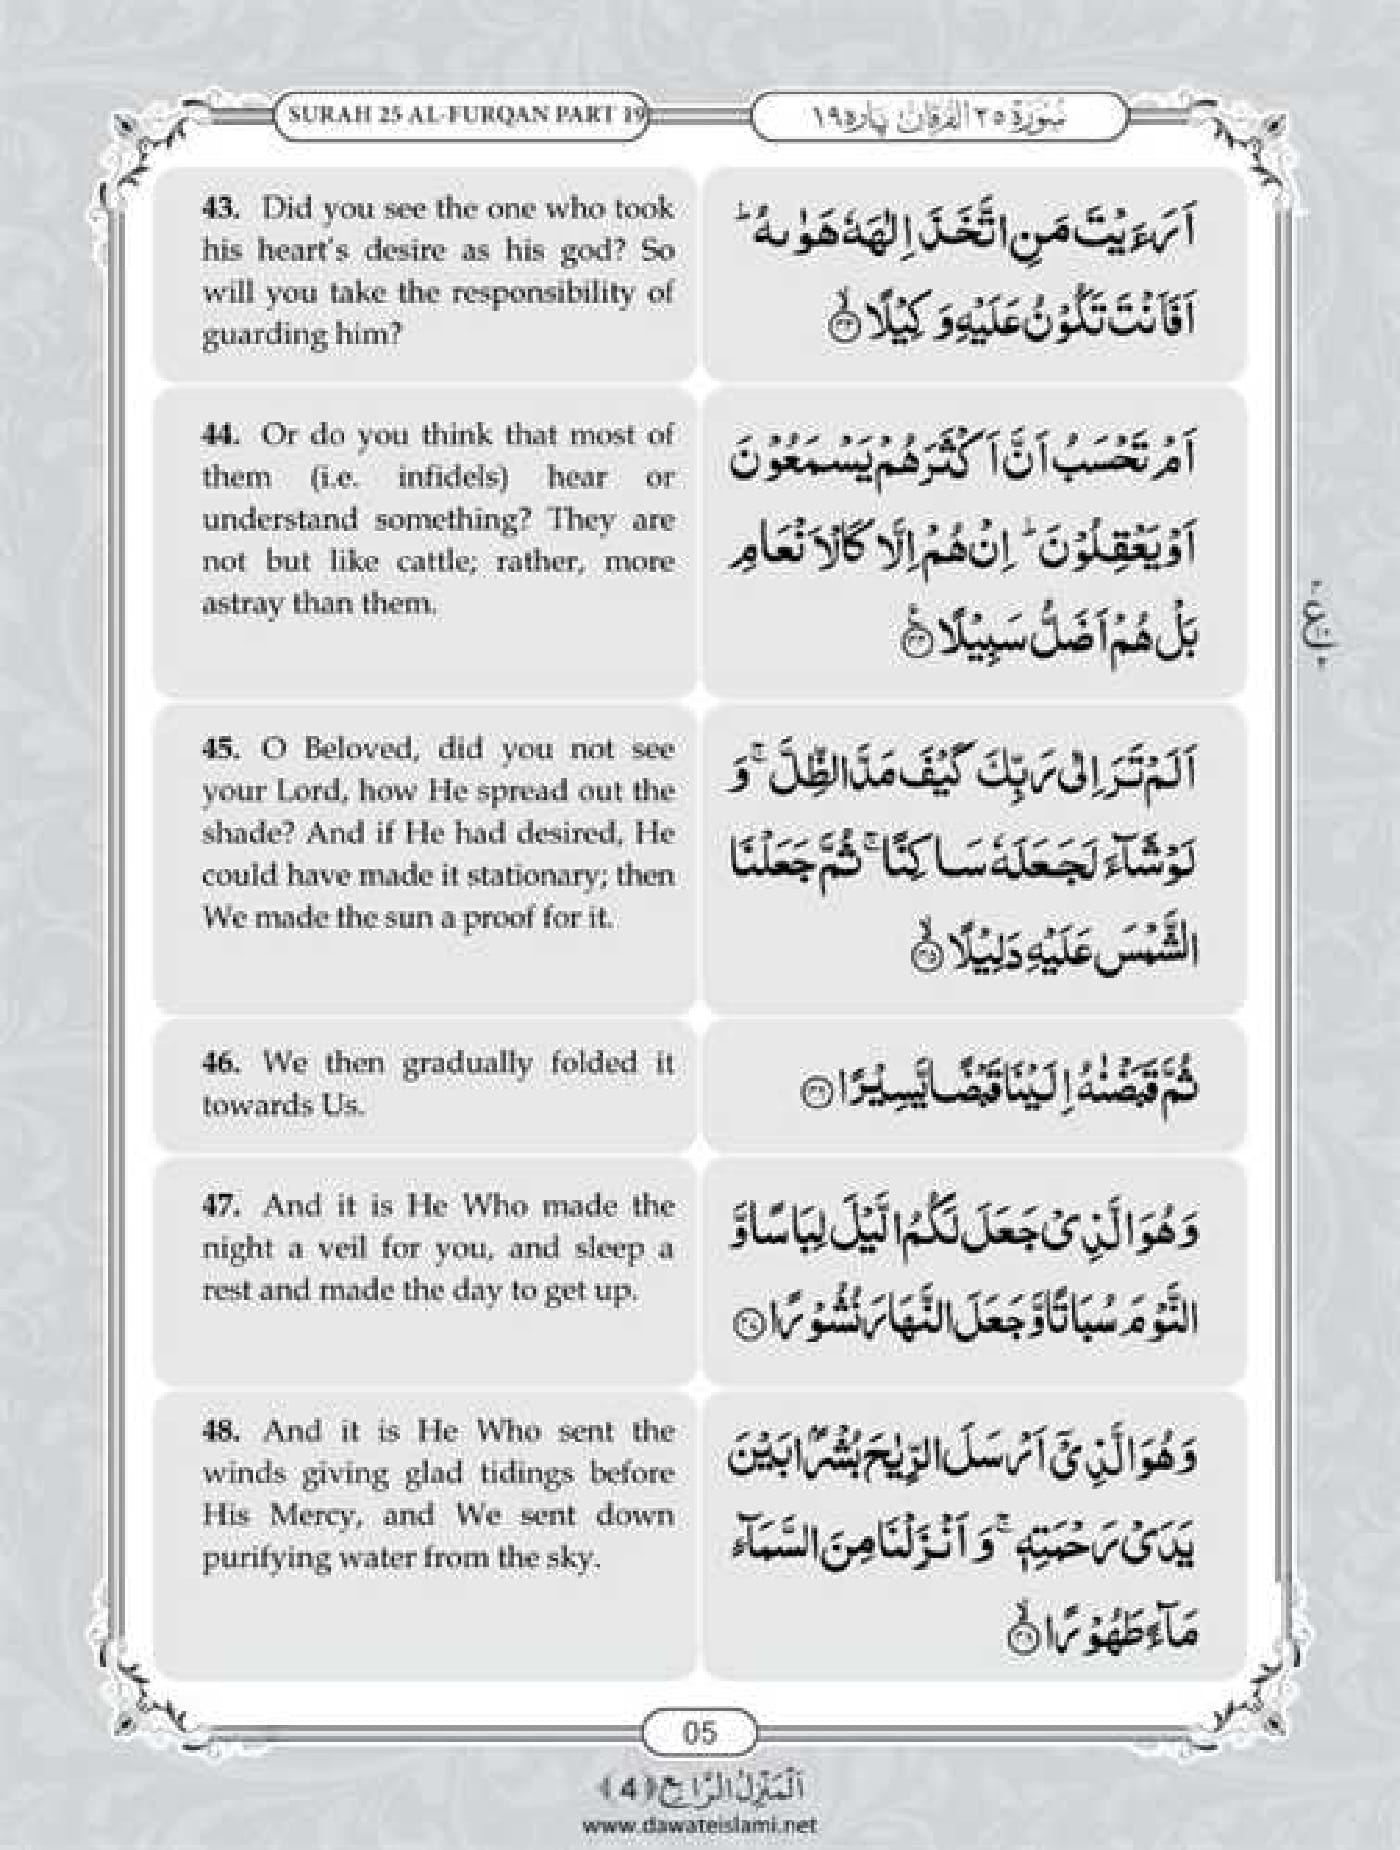 SURAH 25 AL-FURQAN PART 19
سُوْرَةُ ٢٥ اَلْفُرْقَان پاره ١٩
43. Did you see the one who took
his heart's desire as his god? So
will you take the responsibility of
guarding him?
اَرَءَيْتَ مَنِ اتَّخَذَ اِلٰهَهٗ هَوٰىهُ ؕ
اَفَاَنْتَ تَكُوْنُ عَلَيْهِ وَكِيْلًا ۙ﴿۴۳﴾
44. Or do you think that most of
them (i.e. infidels) hear or
understand something? They are
not but like cattle; rather, more
astray than them.
اَمْ تَحْسَبُ اَنَّ اَكْثَرَهُمْ يَسْمَعُوْنَ
اَوْ يَعْقِلُوْنَ ؕ اِنْ هُمْ اِلَّا كَالْاَنْعَامِ
بَلْ هُمْ اَضَلُّ سَبِيْلًا ﴿۴۴﴾
45. O Beloved, did you not see
your Lord, how He spread out the
shade? And if He had desired, He
could have made it stationary; then
We made the sun a proof for it.
اَلَمْ تَرَ اِلٰى رَبِّكَ كَيْفَ مَدَّ الظِّلَّ ۚ وَ
لَوْ شَآءَ لَجَعَلَهٗ سَاكِنًا ۚ ثُمَّ جَعَلْنَا
الشَّمْسَ عَلَيْهِ دَلِيْلًا ۙ﴿۴۵﴾
46. We then gradually folded it
towards Us.
ثُمَّ قَبَضْنٰهُ اِلَيْنَا قَبْضًا يَّسِيْرًا ﴿۴۶﴾
47. And it is He Who made the
night a veil for you, and sleep a
rest and made the day to get up.
وَ هُوَ الَّذِيْ جَعَلَ لَكُمُ الَّيْلَ لِبَاسًا وَّ
النَّوْمَ سُبَاتًا وَّ جَعَلَ النَّهَارَ نُشُوْرًا ﴿۴۷﴾
48. And it is He Who sent the
winds giving glad tidings before
His Mercy, and We sent down
purifying water from the sky.
وَ هُوَ الَّذِيْۤ اَرْسَلَ الرِّيٰحَ بُشْرًۢا بَيْنَ
يَدَيْ رَحْمَتِهٖ ۚ وَ اَنْزَلْنَا مِنَ السَّمَآءِ
مَآءً طَهُوْرًا ۙ﴿۴۸﴾
05
اَلْمَنْزِلُ الرَّابِع ﴿4﴾
www.dawateislami.net